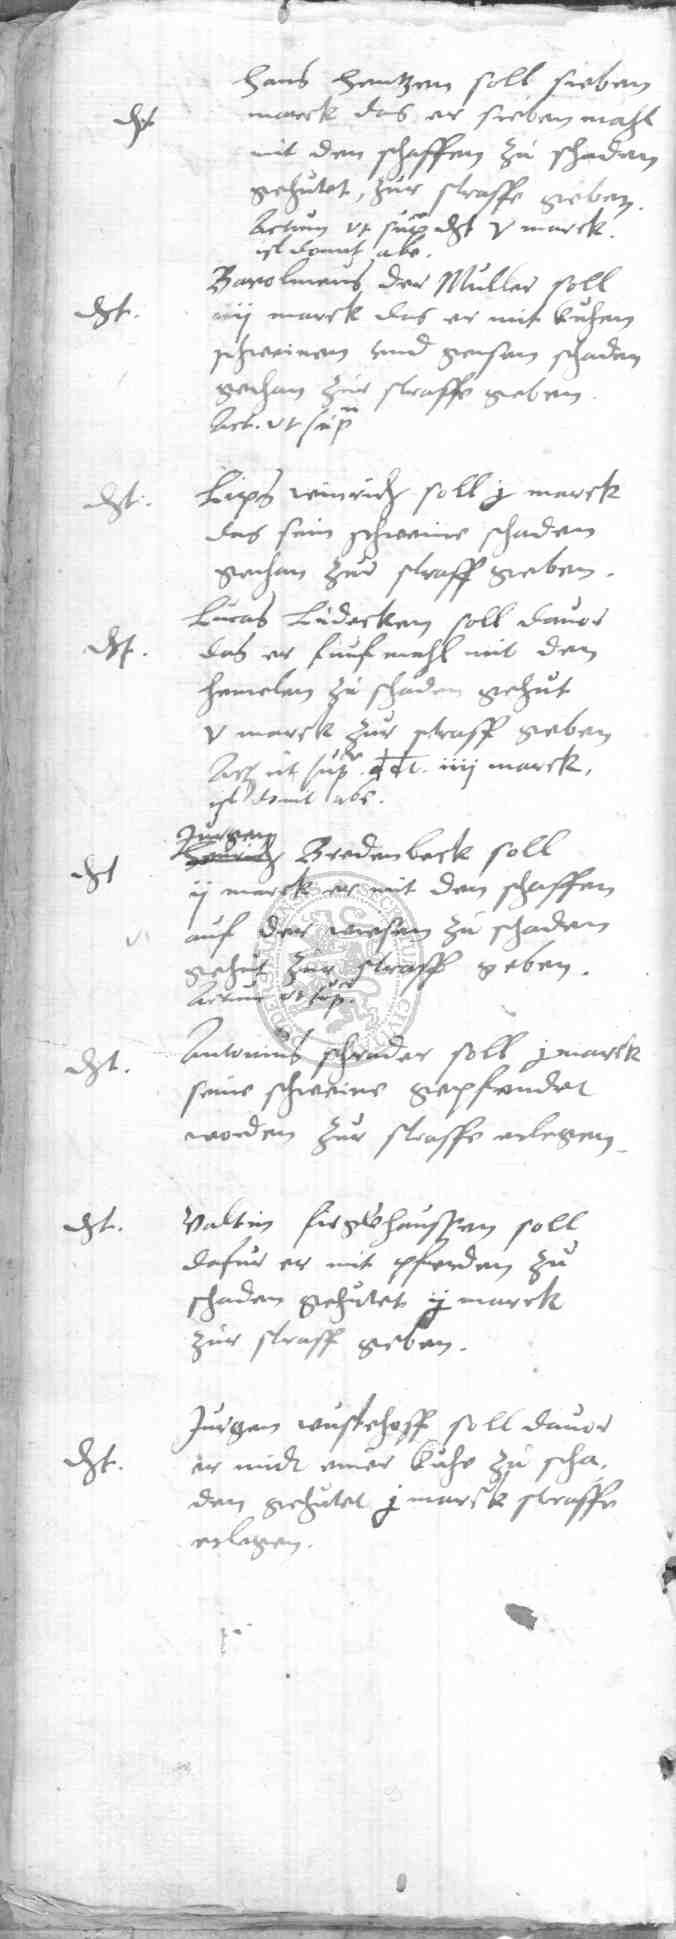 Hans Hentzen soll sieben
dt. marck das er sieben mahl
mit den schaffen zu schaden
gehutet, zur straffe geben.
Actum ut sup dt v marck.
ist damit abe.
Barolmeus der Muller soll
dt. iiij marck das er mit kuhen
schweinen und gensen schaden
gethan zur straffe geben.
Act. ut sup
dt. Lips Heinrich soll j marck
das sein schweine schaden
gethan zur straff geben.
Lucas Ludecken soll davor
dt. das er funfmahl mit den
hemelen zu schaden gehut
v marck zur straff geben
Act ut sup. dt. iiij marck,
ist damit abe.
Jurgen
dt Bredenbeck soll
ij marck er mit den schaffen
auf der wiesen zu schaden
gehut zur straff geben.
Actum ut sup.
dt. Antonius schrader soll j marck
seine schweine gepfendet
worden zur straffe erlegen.
dt. Valtin soll
dafur er mit pferden zu
schaden gehutet ij marck
zur straff geben.
Jurgen wustehoff soll davor
dt. er midt einer kuhe zu scha,
den gehutet j marck straffe
erlegen.